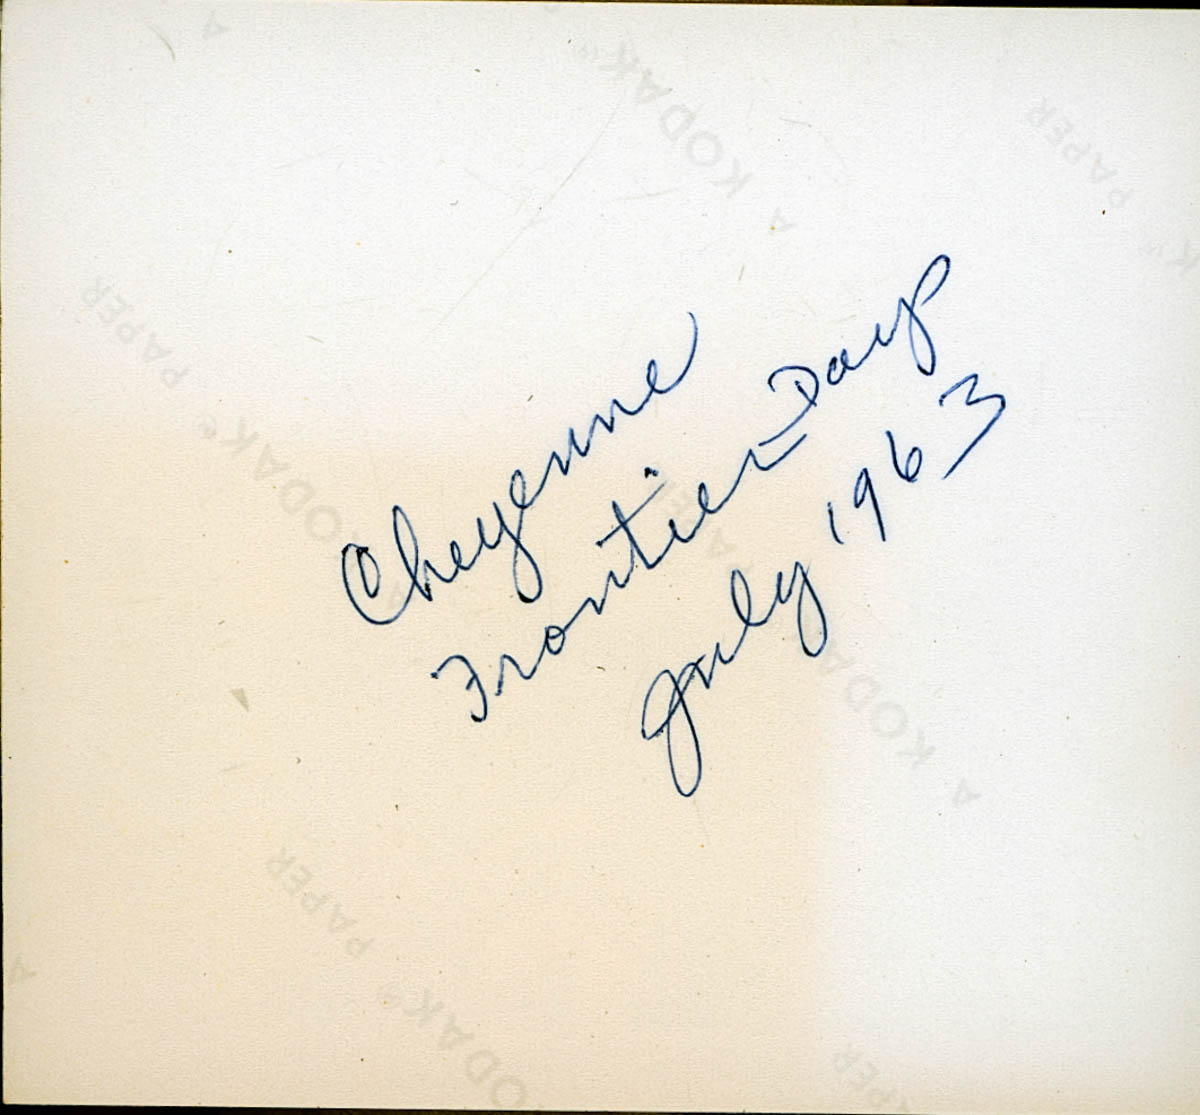 Cheyenne
Frontier Days
July 1963
A KODAK PAPER
A KODAK® PAPER
A KODAK PAPER
A KODAK® PAPER